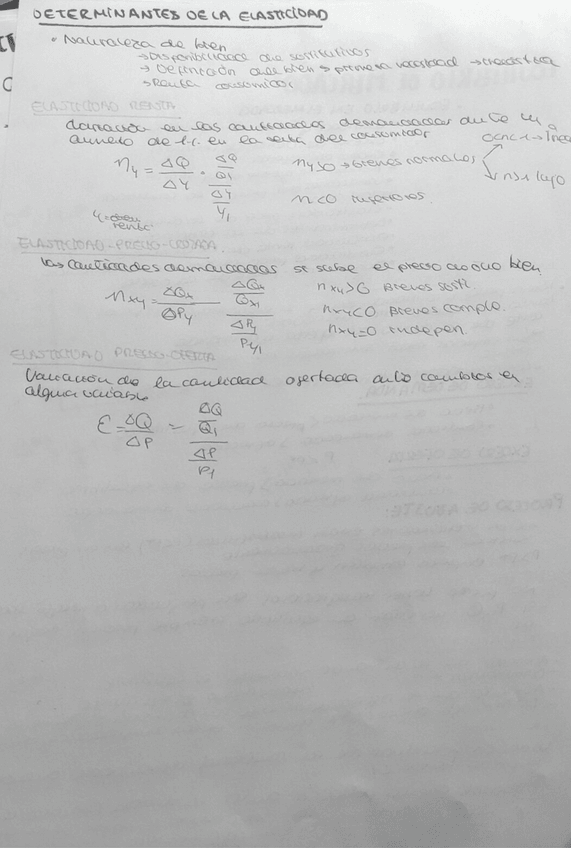 DETERMINANTES DE LA ELASTICIDAD
• Naturaleza de bien
→ Disponibilidad de sustitutivos
→ Definición del bien → primera necesidad →
→ Renta consumidor
ELASTICIDAD RENTA
Variación en las cantidades demandadas ante un
aumento de 1. en la renta del consumidor
n_y = ΔQ/ΔY · (ΔQ/Q1)/(ΔY/Y1)
ny>0 → bienes normales
0<n<1 →
n>1 lujo
n<0 inferiores.
renta
ELASTICIDAD-PRECIO-CRUZADA
Las cantidades demandadas se sube el precio de otro bien
n_xy = ΔQx/ΔPy (ΔQx/Qx1)/(ΔPy/Py1)
nxy>0 bienes susti.
nxy<0 bienes comple.
nxy=0 indepen.
ELASTICIDAD PRECIO-OFERTA
Variación de la cantidad ofertada ante cambios en
alguna variable
E = ΔQ/ΔP = (ΔQ/Q1)/(ΔP/P1)